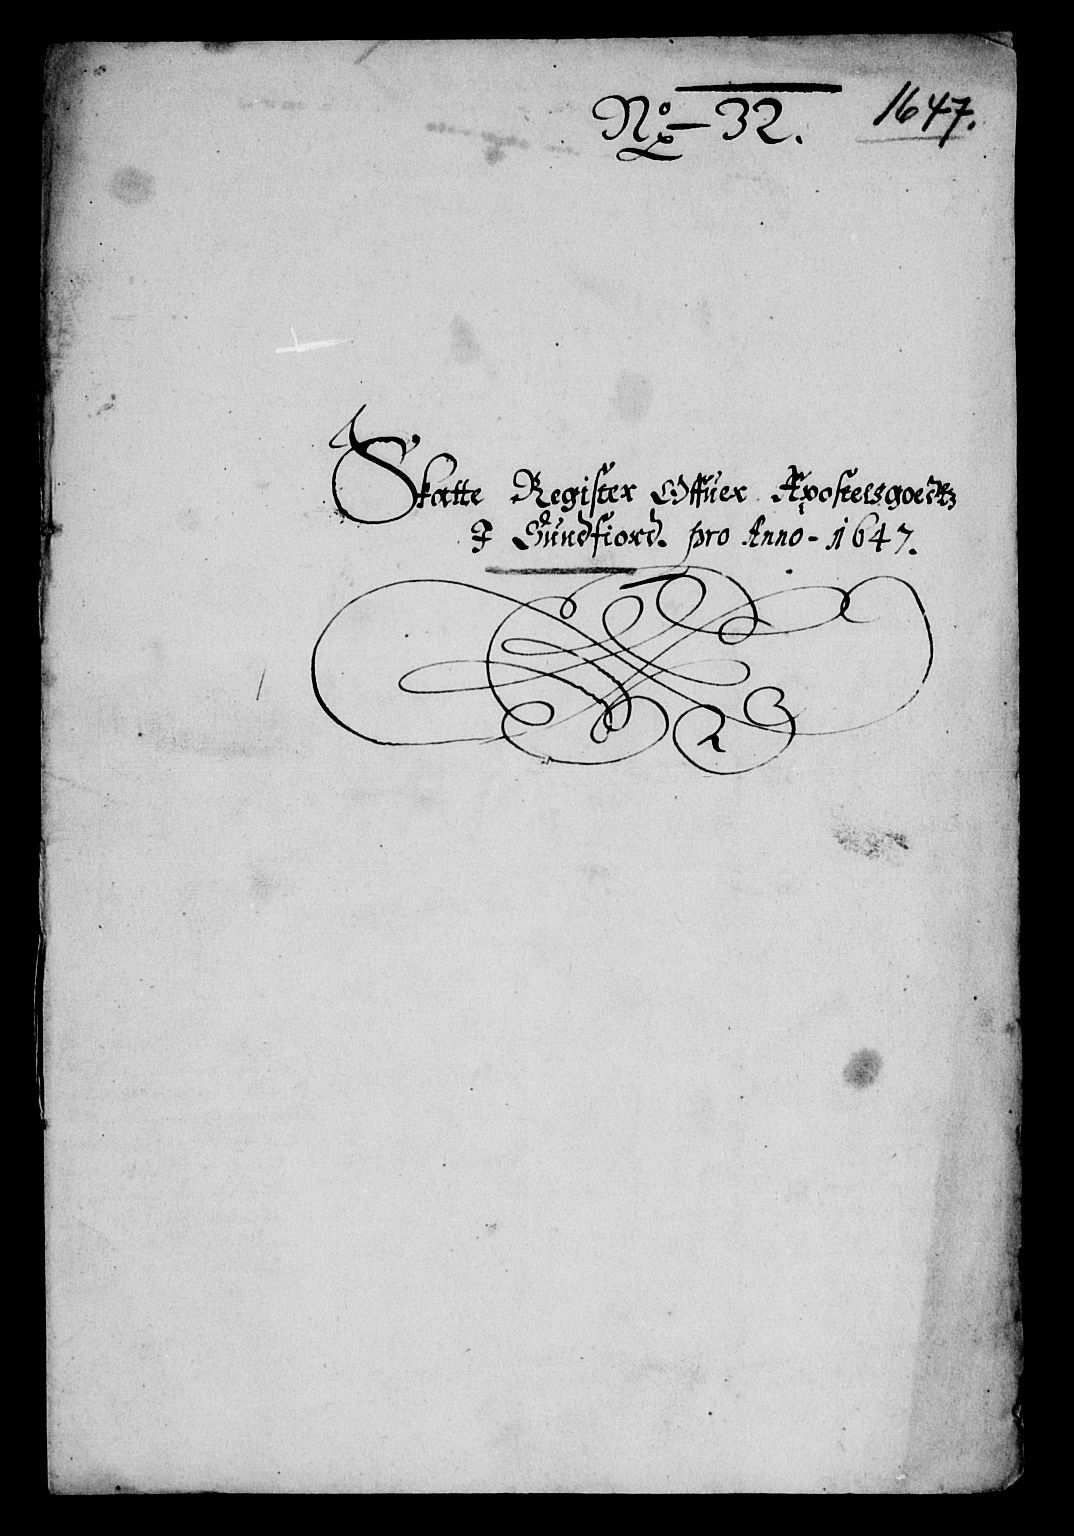 No 32. 1647.
Skatte Register Offuer Apostelsgoedtz
I Sundfiord. pro Anno - 1647.